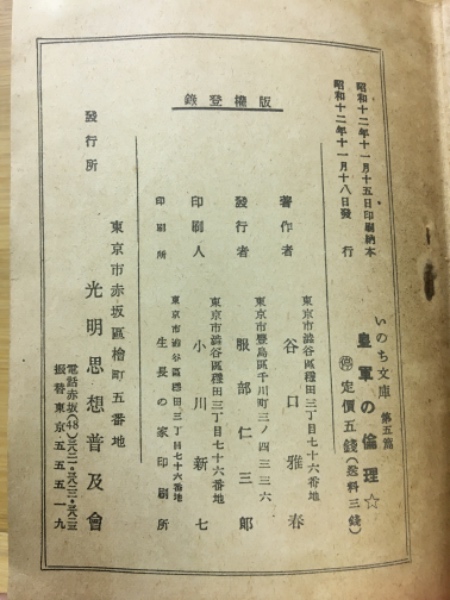 昭和十二年十一月十五日印刷納本
昭和十二年十一月十八日發行
いのち文庫 第五篇
皇軍の倫理☆
㊕定價五錢(送料三錢)
版權登錄
東京市澁谷區穩田三丁目七十六番地
著作者 谷口雅春
東京市豐島區千川町三ノ四三三六
發行者 服部仁三郎
東京市澁谷區穩田三丁目七十六番地
印刷人 小川新七
東京市澁谷區穩田三丁目七十六番地
印刷所 生長の家印刷所
發行所
東京市赤坂區檜町五番地
光明思想普及會
電話赤坂(48)
振替東京五五五一九